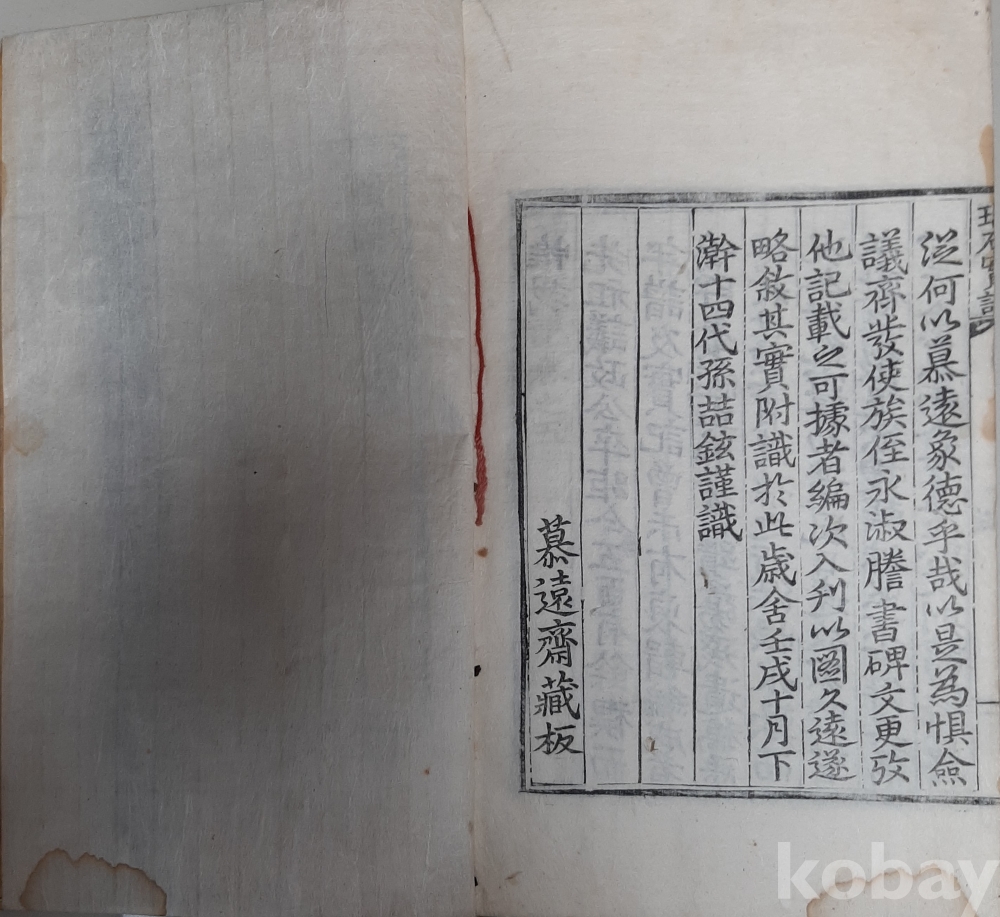 從何以慕遠象德乎哉以是為惧僉
議齊發使族侄永淑謄書碑文更攷
他記載之可據者編次入刋以圖久遠遂
略敘其實附識於此歲舍壬戌十月下
澣十四代孫喆鉉謹識
慕遠齋藏板
kobay